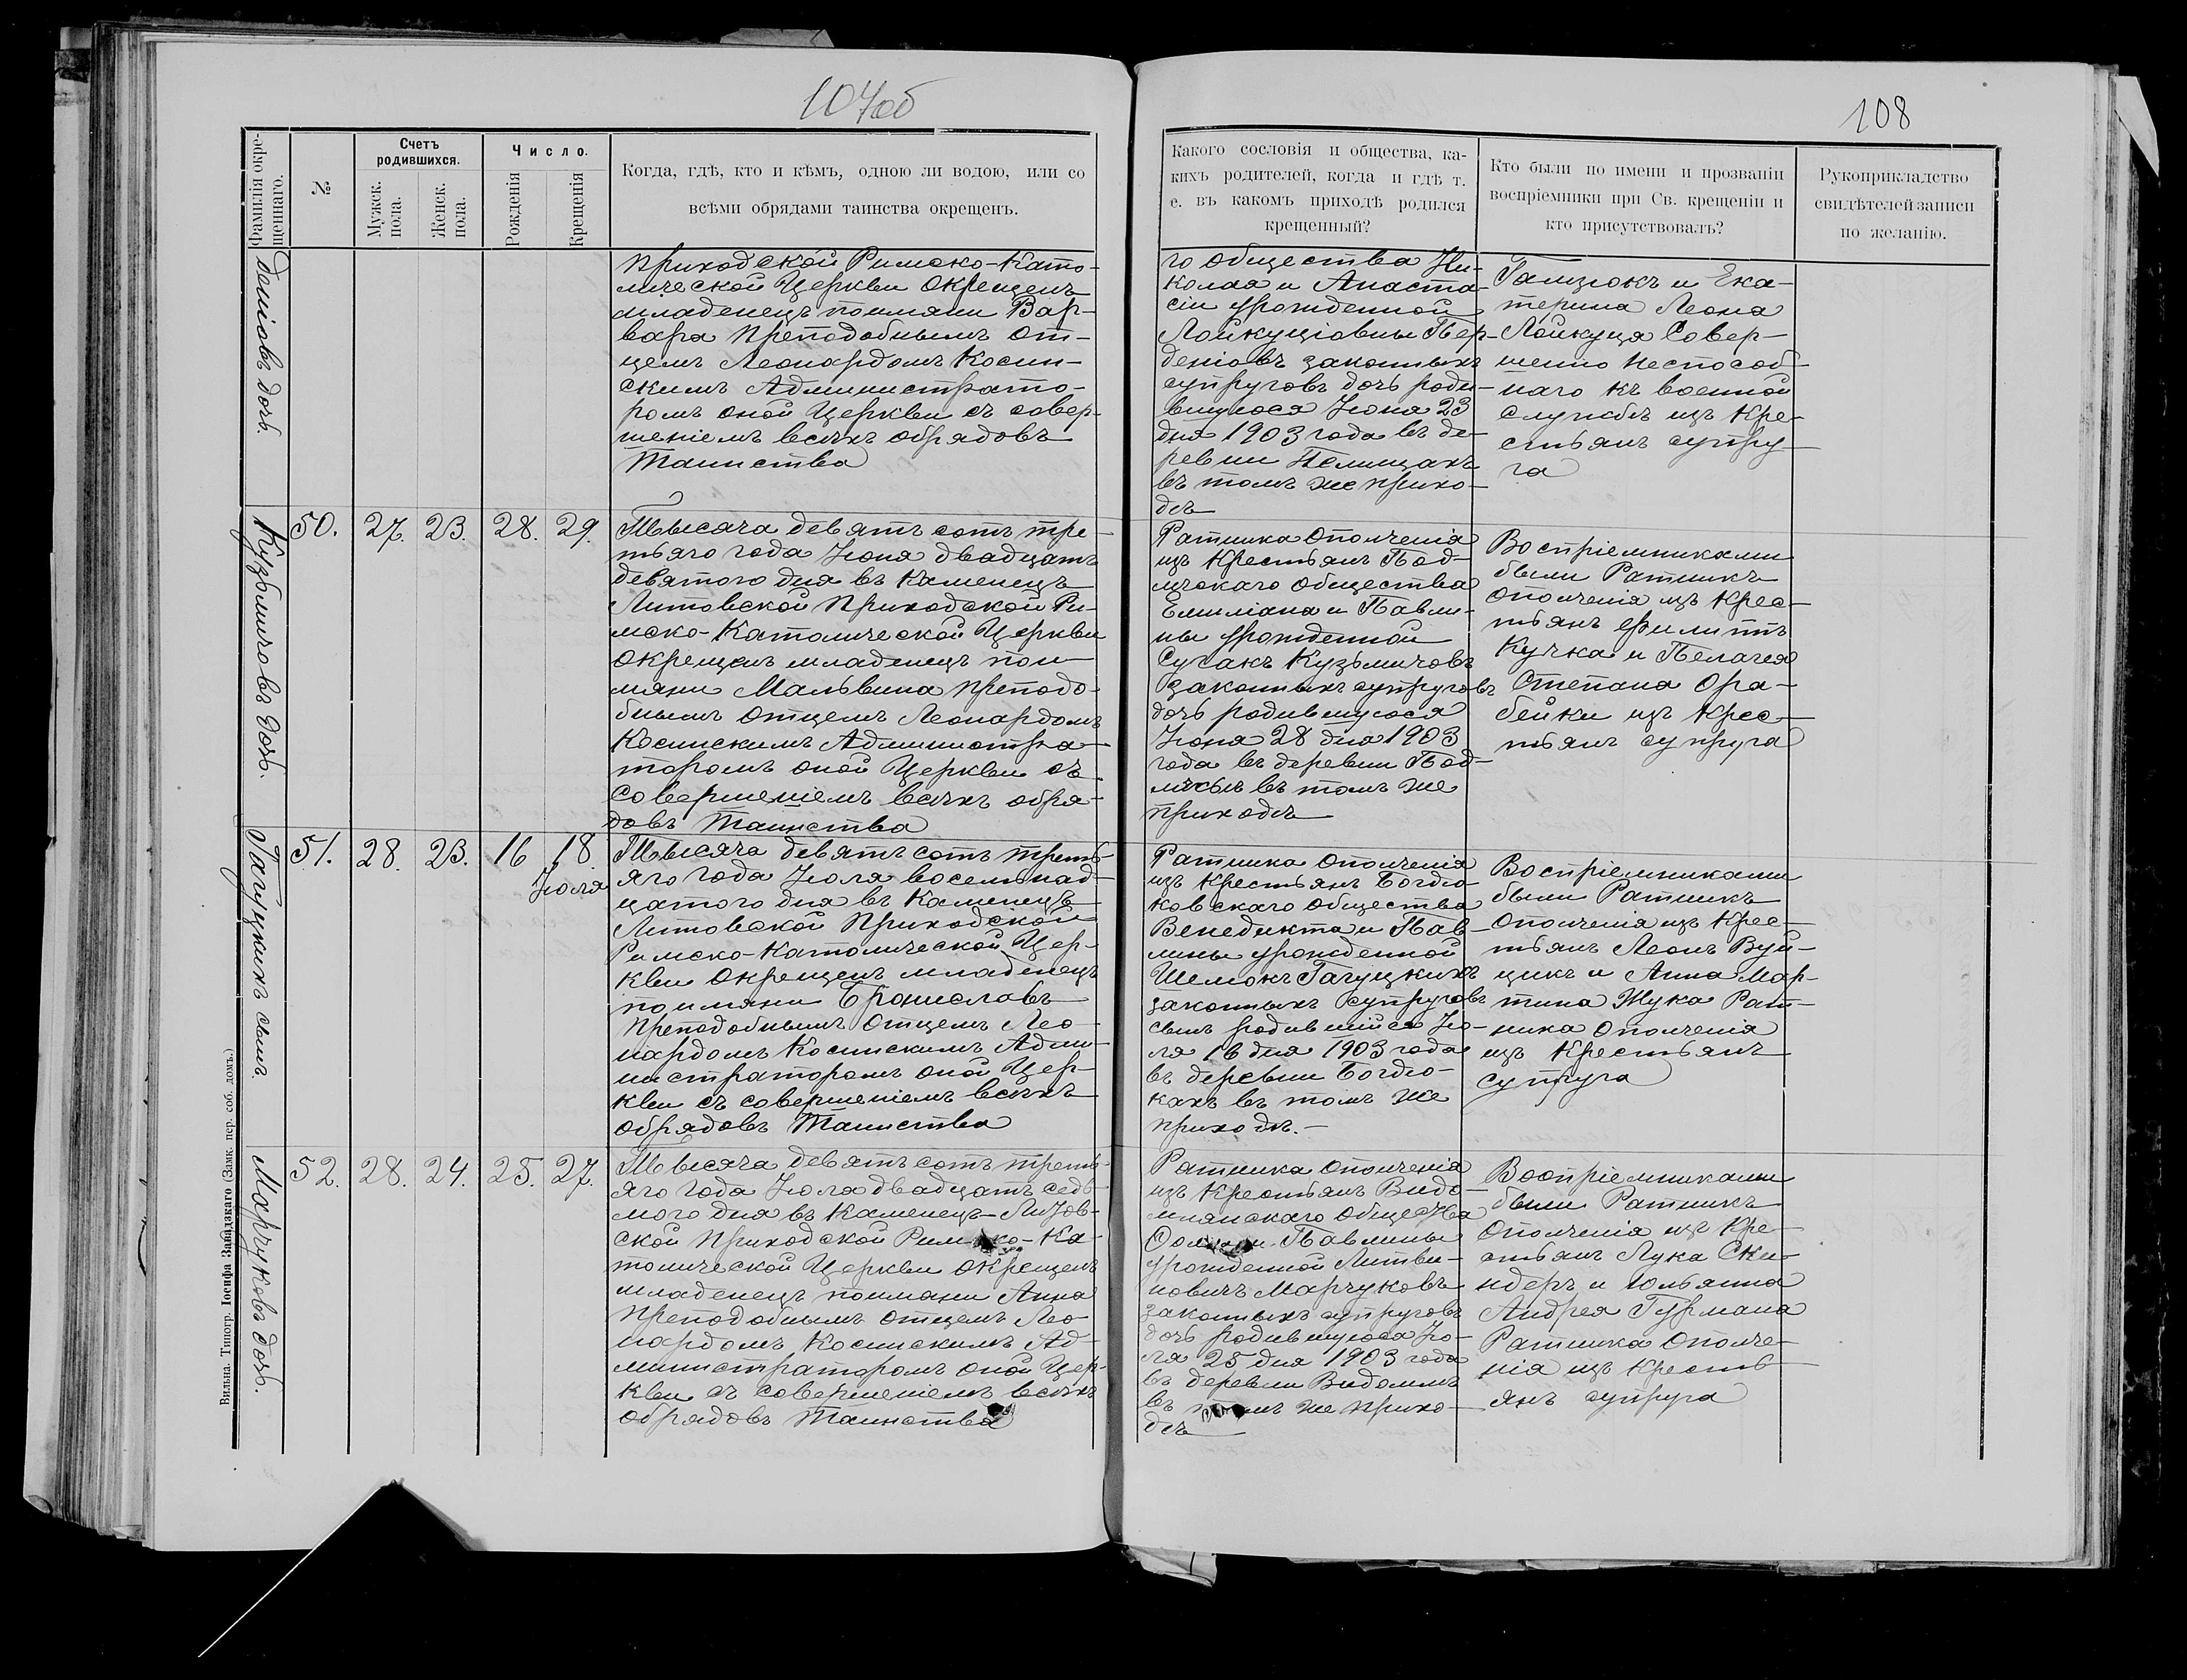 107об
108
Фамилія окре-
щеннаго.
№
Счетъ
родившихся.
Мужск.
пола.
Женск.
пола.
Число.
Рожденія
Крещенія
Когда, гдѣ, кто и кѣмъ, одною ли водою, или со
всѣми обрядами таинства окрещенъ.
Какого сословія и общества, ка-
кихъ родителей, когда и гдѣ т.
е. въ какомъ приходѣ родился
крещенный?
Кто были по имени и прозванію
воспріемники при Св. крещеніи и
кто присутствовалъ?
Рукоприкладство
свидѣтелей записи
по желанію.
деніовъ дочь.
приходской Римско-Като-
лической Церкви окрещенъ
младенецъ поимяни Вар-
вара Преподобнымъ От-
цемъ Леонардомъ Косин-
скимъ Администрато-
ромъ оной Церкви съ совер-
шеніемъ всѣхъ обрядовъ
Таинства
го общества Ни-
колая и Анаста-
сіи урожденной
Лойкуціовны Пер-
деніовъ законныхъ
супруговъ дочь роди-
вшуюся Іюня 23
дня 1903 года въ де-
ревни Пелищахъ
въ томъ же прихо-
дѣ
Гамзюкъ и Ека-
терина Леона
Лойкуця Совер-
шенно неспособ-
наго къ военной
службѣ изъ Кре-
стьянъ супру-
га
Кузьмичовъ дочь.
50. 27. 23. 28. 29.
Тысяча девятъ сотъ тре-
тьяго года Іюня двадцатъ
девятого дня въ Каменецъ
Литовской Приходской Ри-
мско-Католической Церкви
окрещенъ младенецъ пои-
мяни Мальвина преподо-
бнымъ Отцемъ Леонардомъ
Косинскимъ Администра-
торомъ оной Церкви съ
совершеніемъ всѣхъ обря-
довъ Таинства
Ратника Ополченія
изъ Крестьянъ Под-
мѣскаго общества
Емиліана и Павли-
ны урожденной
Сугакъ Кузьмичовъ
законныхъ супруговъ
дочь родившуюся
Іюня 28 дня 1903
года въ деревни Под-
въ томъ же
приходѣ
Воспріемниками
были Ратникъ
ополченія изъ Крес-
тьянъ Филиппъ
Кучка и Пелагея
Степана Ора-
бейки изъ Крес-
тьянъ супруга
Гагуцкихъ сынъ.
51. 28. 23. 16 18.
Іюля
Тысяча девятъ сотъ треть-
яго года Іюля восемьнад-
цатого дня въ Каменецъ
Литовской Приходской
Римско-Католической Цер-
кви окрещенъ младенецъ
поимяни Брониславъ
Преподобнымъ Отцемъ Лео-
нардомъ Косинскимъ Адми-
нистраторомъ оной Цер-
кви съ совершеніемъ всѣхъ
обрядовъ Таинства
Ратника Ополченія
изъ Крестьянъ Богдю-
ковскаго Общества
Венедикта и Пав-
лины урожденной
Шемокъ Гагуцкихъ
законныхъ супруговъ
сынъ родившійся Ію-
ля 16 дня 1903 года
въ деревни Богдю-
кахъ въ томъ же
приходѣ.
Воспріемниками
были Ратникъ
Ополченія изъ Крес-
тьянъ Леонъ Вуй-
цикъ и Анна Мар-
тина Жука Рат-
ника Ополченія
изъ Крестьянъ
супруга
Марчуковъ дочь.
52. 28. 24. 25. 27.
Тысяча девятъ сотъ треть-
яго года Іюля двадцатъ седь-
мого дня въ Каменецъ-Литов-
ской Приходской Римско-Ка-
толической Церкви окрещенъ
младенецъ поимяни Анна
Преподобнымъ Отцемъ Лео-
нардомъ Косинскимъ Ад-
министраторомъ оной Цер-
кви съ совершеніемъ всѣхъ
обрядовъ Таинства
Ратника Ополченія
изъ Крестьянъ Видо-
млянскаго Общества
Павлины
урожденной Литви-
новичъ Марчуковъ
законныхъ супруговъ
дочь родившуюся Ію-
ля 25 дня 1903 года
въ деревни Видомлѣ
въ томъ же прихо-
дѣ
Воспріемниками
были Ратникъ
Ополченія изъ Кре-
стьянъ Лука Ски-
ндеръ и Юльянна
Андрея Гурмана
Ратника Ополче-
нія изъ Кресть-
янъ супруга
Вильна. Типогр. Іосифа Завадзкаго (Замк. пер. соб. домъ.)